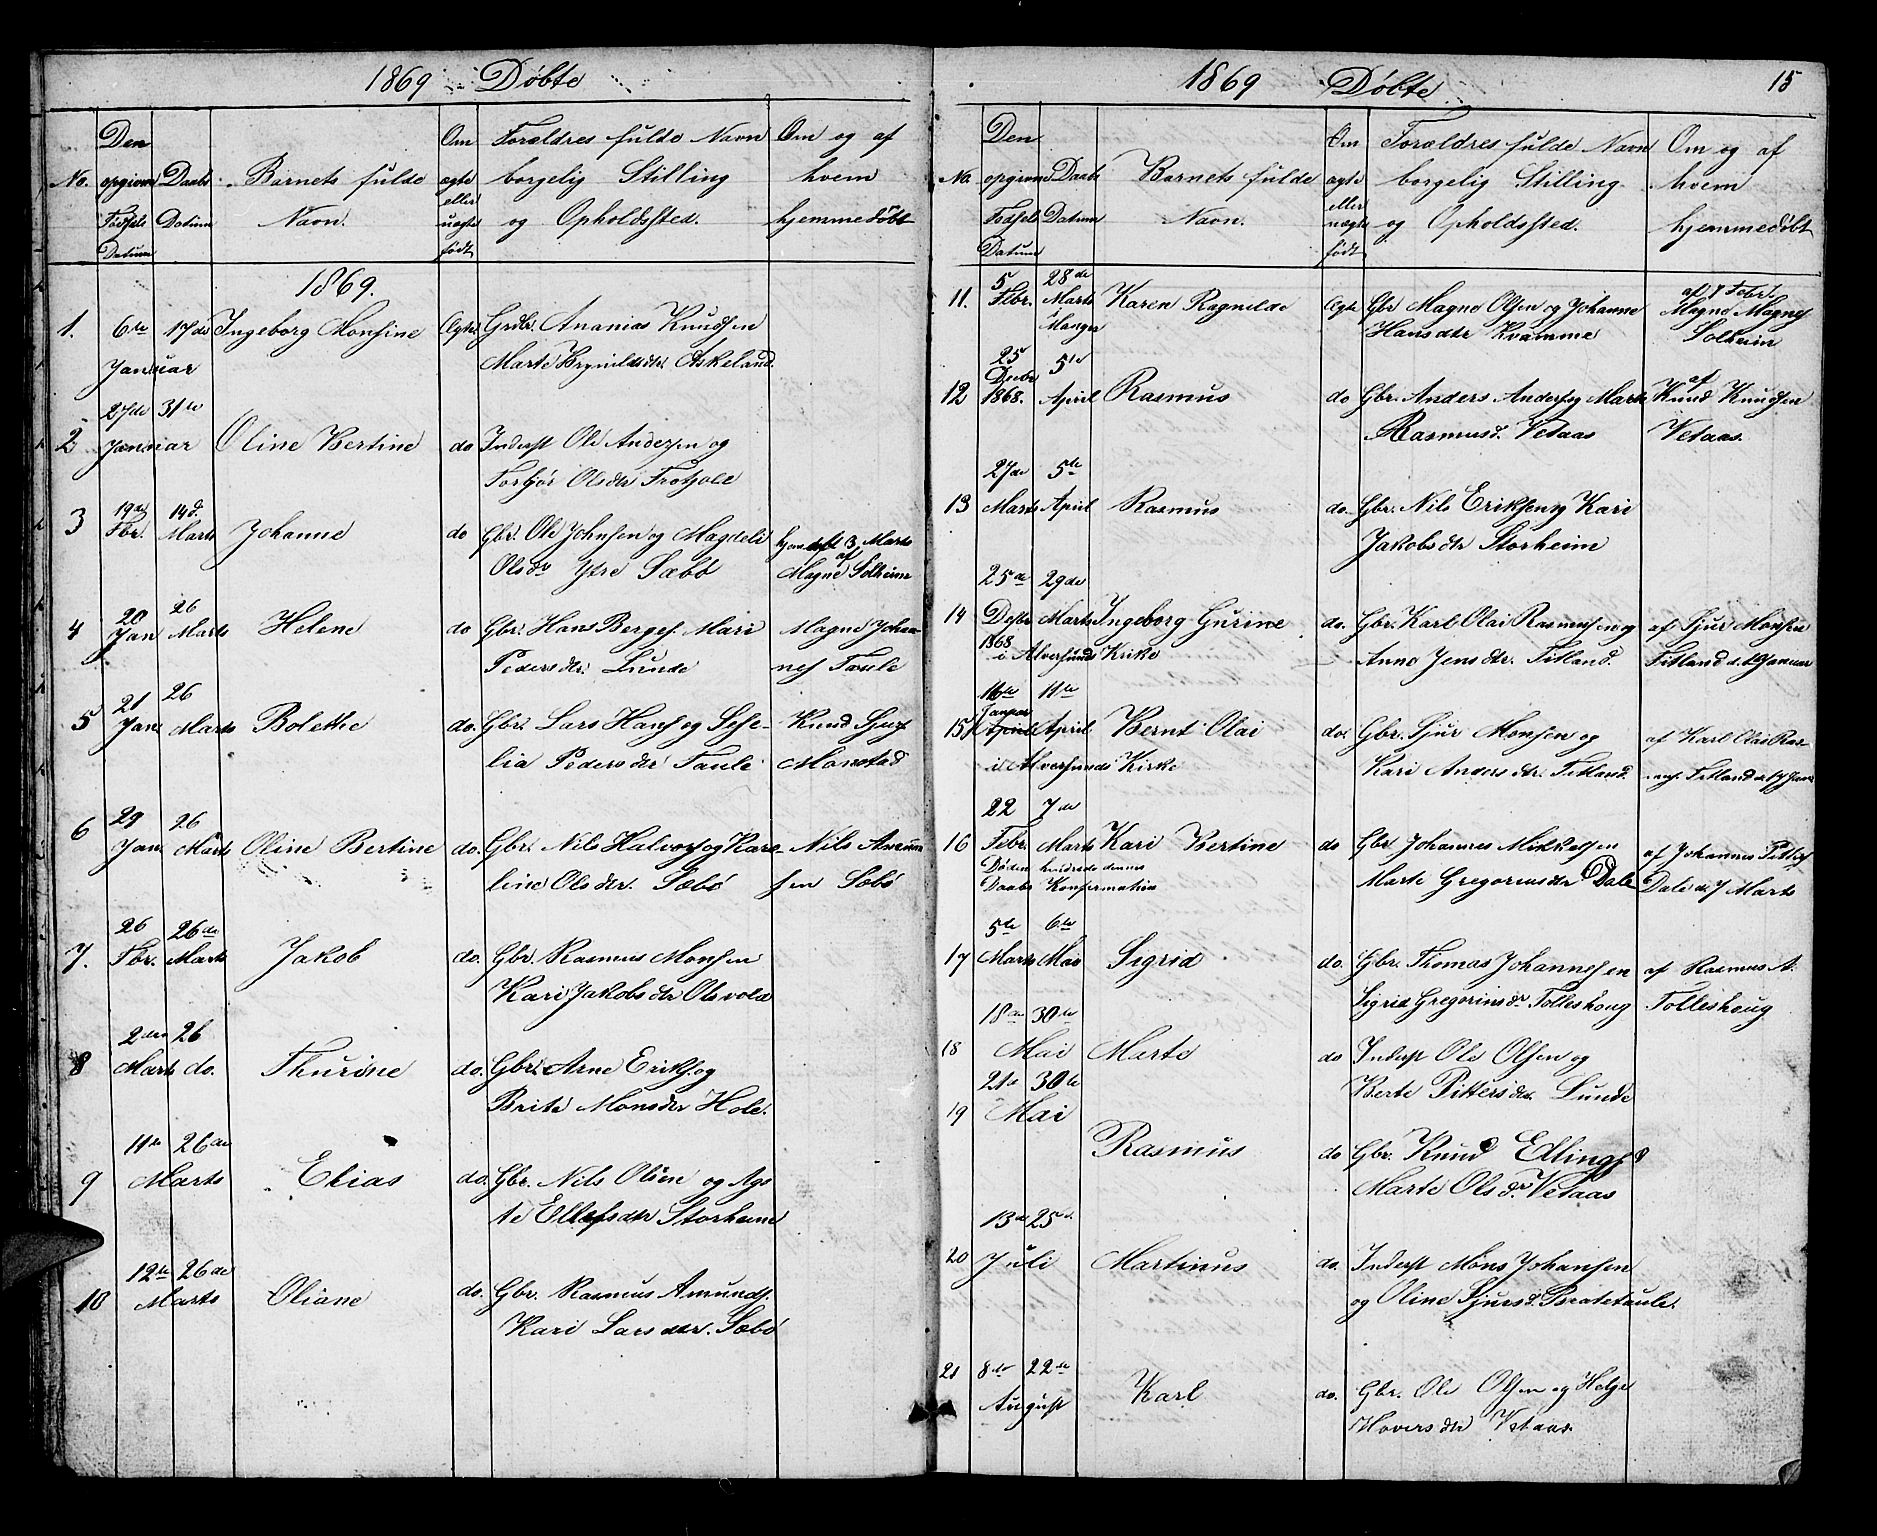 1869 Döbte
Den
No. opgivne Daabs Barnets fulde
Fødsels Datum Navn.
Datum
Om ægte eller uægte født
Forældres fulde Navn
borgelig Stilling
og Opholdssted.
Om og af
hvem
hjemmedöbt
1869.
1. 6te 17de Ingeborg Monsine Ægte Grdbr. Ananias Knudsen
Januar Marte Brynildsdtr Askeland.
27de 31te
2 Januar Oline Bertine do Inderst Ole Andersen og
Olsdtr
19de 14d.
3 Fbr. Marts Johanne do Gbr. Ole Johnsen og Magdeli
Olsdr Ytre Sæbö
hjemdöbt 3 Marts
af
Magne Solheim
20 26
4 Jan Marts Helene do Gbr. Hans Berges. Mari
Pedersdtr. Lunde
Magne Johan-
nes Taule
21 26
5 Jan. Marts Bolethe do. Gbr. Lars Hans og Sese-
lia Pedersdtr Taule
Knud Sjurs
Monstad
29 26
6 Jan. Marts Oline Bertine do. Gbr. Nils Halvors og Kare-
line Olsdtr. Sæbö
Nils Amun
sen Sæbö
26 26de
7. Fbr. Marts Jakob do. Gbr. Rasmus Monsen
Kari Jakobsdtr Olsvold
2den 26
8 Marts do. Thurine do. Gbr. Arne Eriks. og
Brite Monsdtr Hole.
11te 26de
9 Marts Elias do. Gbr. Nils Olsen og Ags
te Ellefsdtr Storheim
12te 26de
10 Marts Oliane do. Gbr. Rasmus Amunds.
Kari Larsdtr. Sæbö
1869 Döbte 15
Den
No. opgivne Daabs Barnets fulde
Fødsels Datum Navn.
Datum
Om ægte eller uægte født
Forældres fulde Navn
borgelig Stilling
og Opholdssted.
Om og af
hvem
hjemmedöbt
5 28de
11. Febr. Marts Karen Ragnilde Ægte Gbr Magne Olsen og Johanne
i Manger
Hansdtr Kvamme
af 8 Febr.
Magne Magnes
Solheim
25 5te
Decbr
12 1868. April Rasmus do Gbr. Anders Anders og Marte
Rasmusd. Vetaas
af
Knud Knudsen
Vetaas.
27de 5te
13 Marts April Rasmus do. Gbr. Nils Eriksen og Kari
Jakobsdtr Storheim
25de 29de
14 Marts Ingeborg Gurine do. Gbr. Karl Olai Rasmussen og
1868
i Alversunds Kirke
Anne Jensdtr. Titland.
af Sjur Monsen
Titland d. Januar
16te 11te
Januar
15 April April Bernt Olai do. Gbr. Sjur Monsen og
i Alversunds Kirke
Kari Andersdtr. Titland.
af Karl Olai Ras-
mus. Titland d. 17 Janr
22 7de
16 Febr. Marts Kari Bertine do Gbr. Johannes Mikkelsen
Döden hindrede dennes
Daabs Konfirmation
Marte Gregoriusdtr Dale
af Johannes
Dale d. 7 Marts
5te 6te
17 Marts Mai Sigrid do. Gbr. Thomas Johannesen
Sigrid Gregoriusdr Tolleshoug
af Rasmus A.
Tolleshoug
18de 30te
18 Mai Marte do Inderst Ole Olsen og
Berte Pittersdtr. Lunde
21d 30te
19 Mai
Rasmus do Gbr. Knud Edlings
Marte Olsdr Vetaas
13de 25d.
20 Juli Martinus do. Inderst Mons Johansen
og Oline Sjursd. Bratetaule.
21 8de 22de
August Karl do. Gbr. Ole Olsen og Helge
Haversdtr Vetaas.